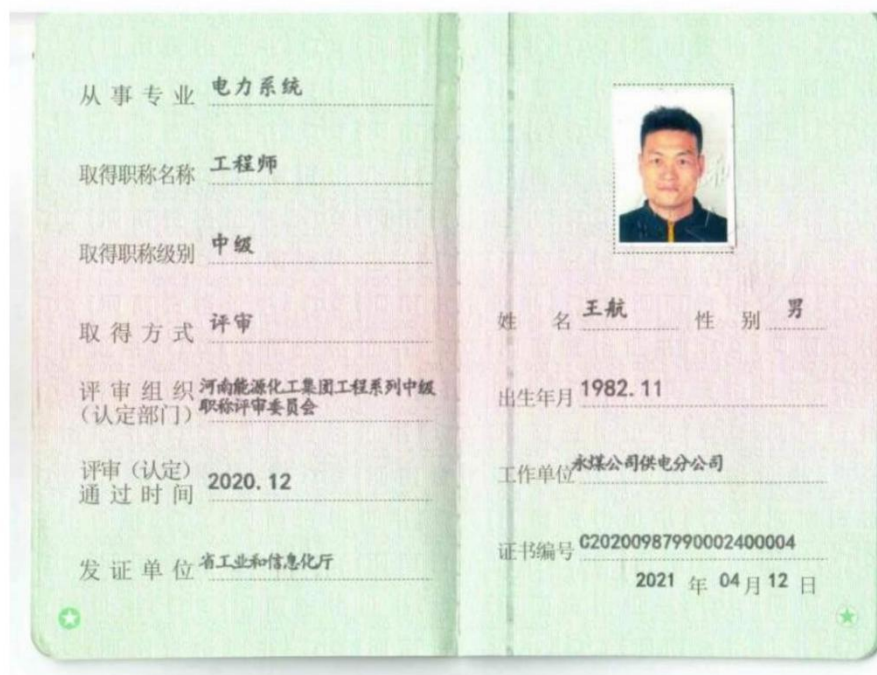 从事专业 电力系统
取得职称名称 工程师
取得职称级别 中级
取得方式 评审
评审组织 河南能源化工集团工程系列中级
(认定部门) 职称评审委员会
评审(认定)
通过时间 2020.12
发证单位 省工业和信息化厅
姓名 王航 性别 男
出生年月 1982.11
工作单位 永煤公司供电分公司
证书编号 C20200987990002400004
2021 年 04 月 12 日